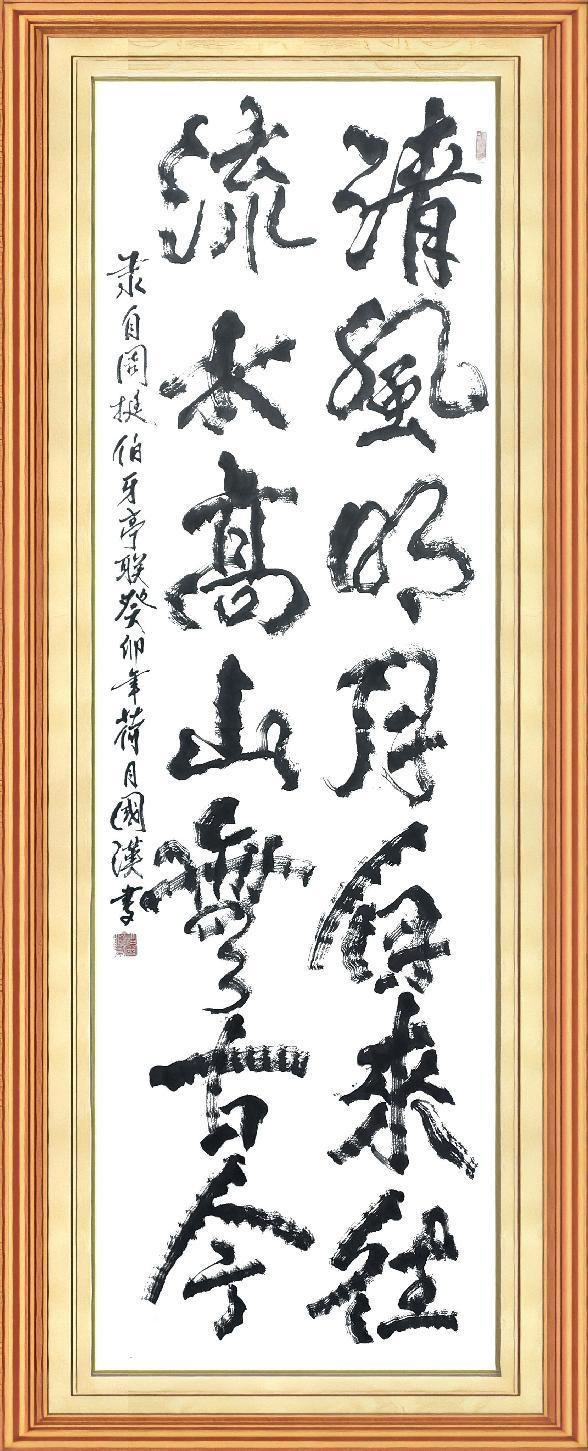 清風明月自來往
流水高山無古今
录自周挺伯牙亭联癸卯年荷月國漢書